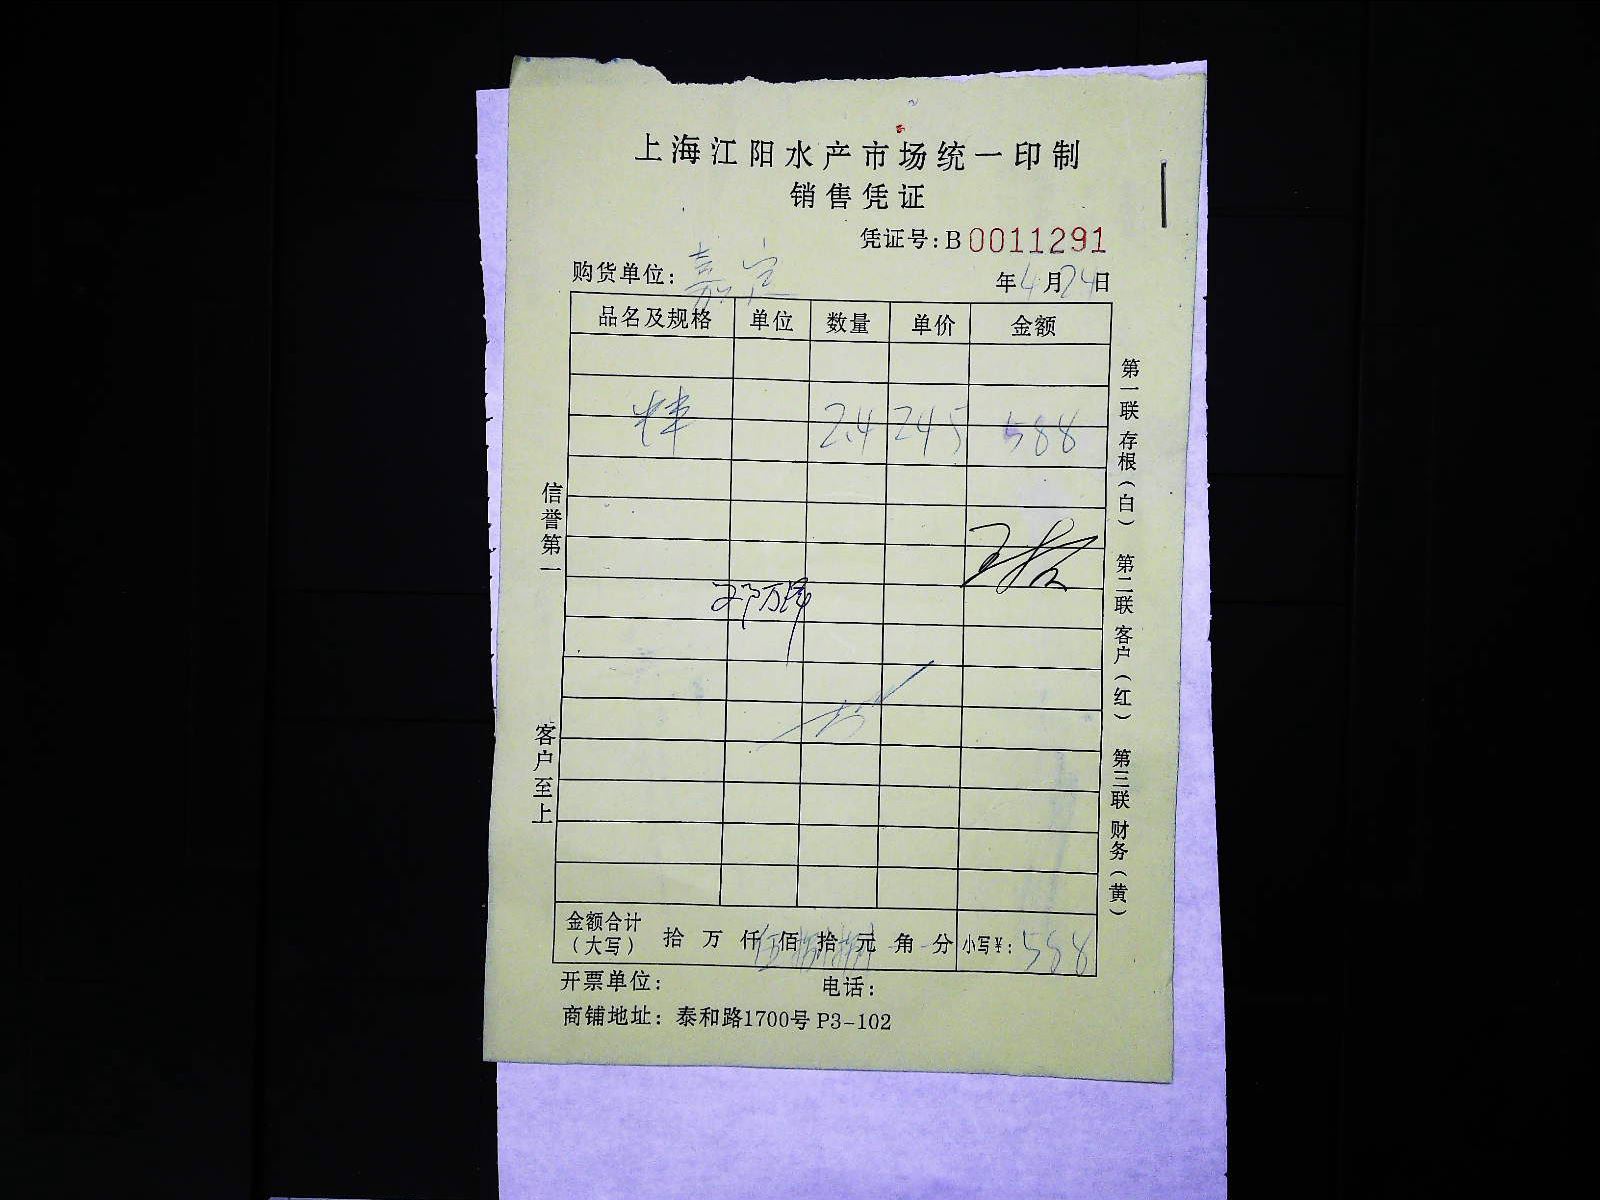 上海江阳水产市场统一印制
销售凭证
凭证号:B0011291
购货单位:嘉定 年4月24日
品名及规格 单位 数量 单价 金额
2.4 245 588
信誉第一
客户至上
第一联存根(白) 第二联客户(红) 第三联财务(黄)
金额合计(大写) 拾 万 仟 伍佰 捌拾 捌元 角 分 小写¥:588
开票单位: 电话:
商铺地址:泰和路1700号P3-102